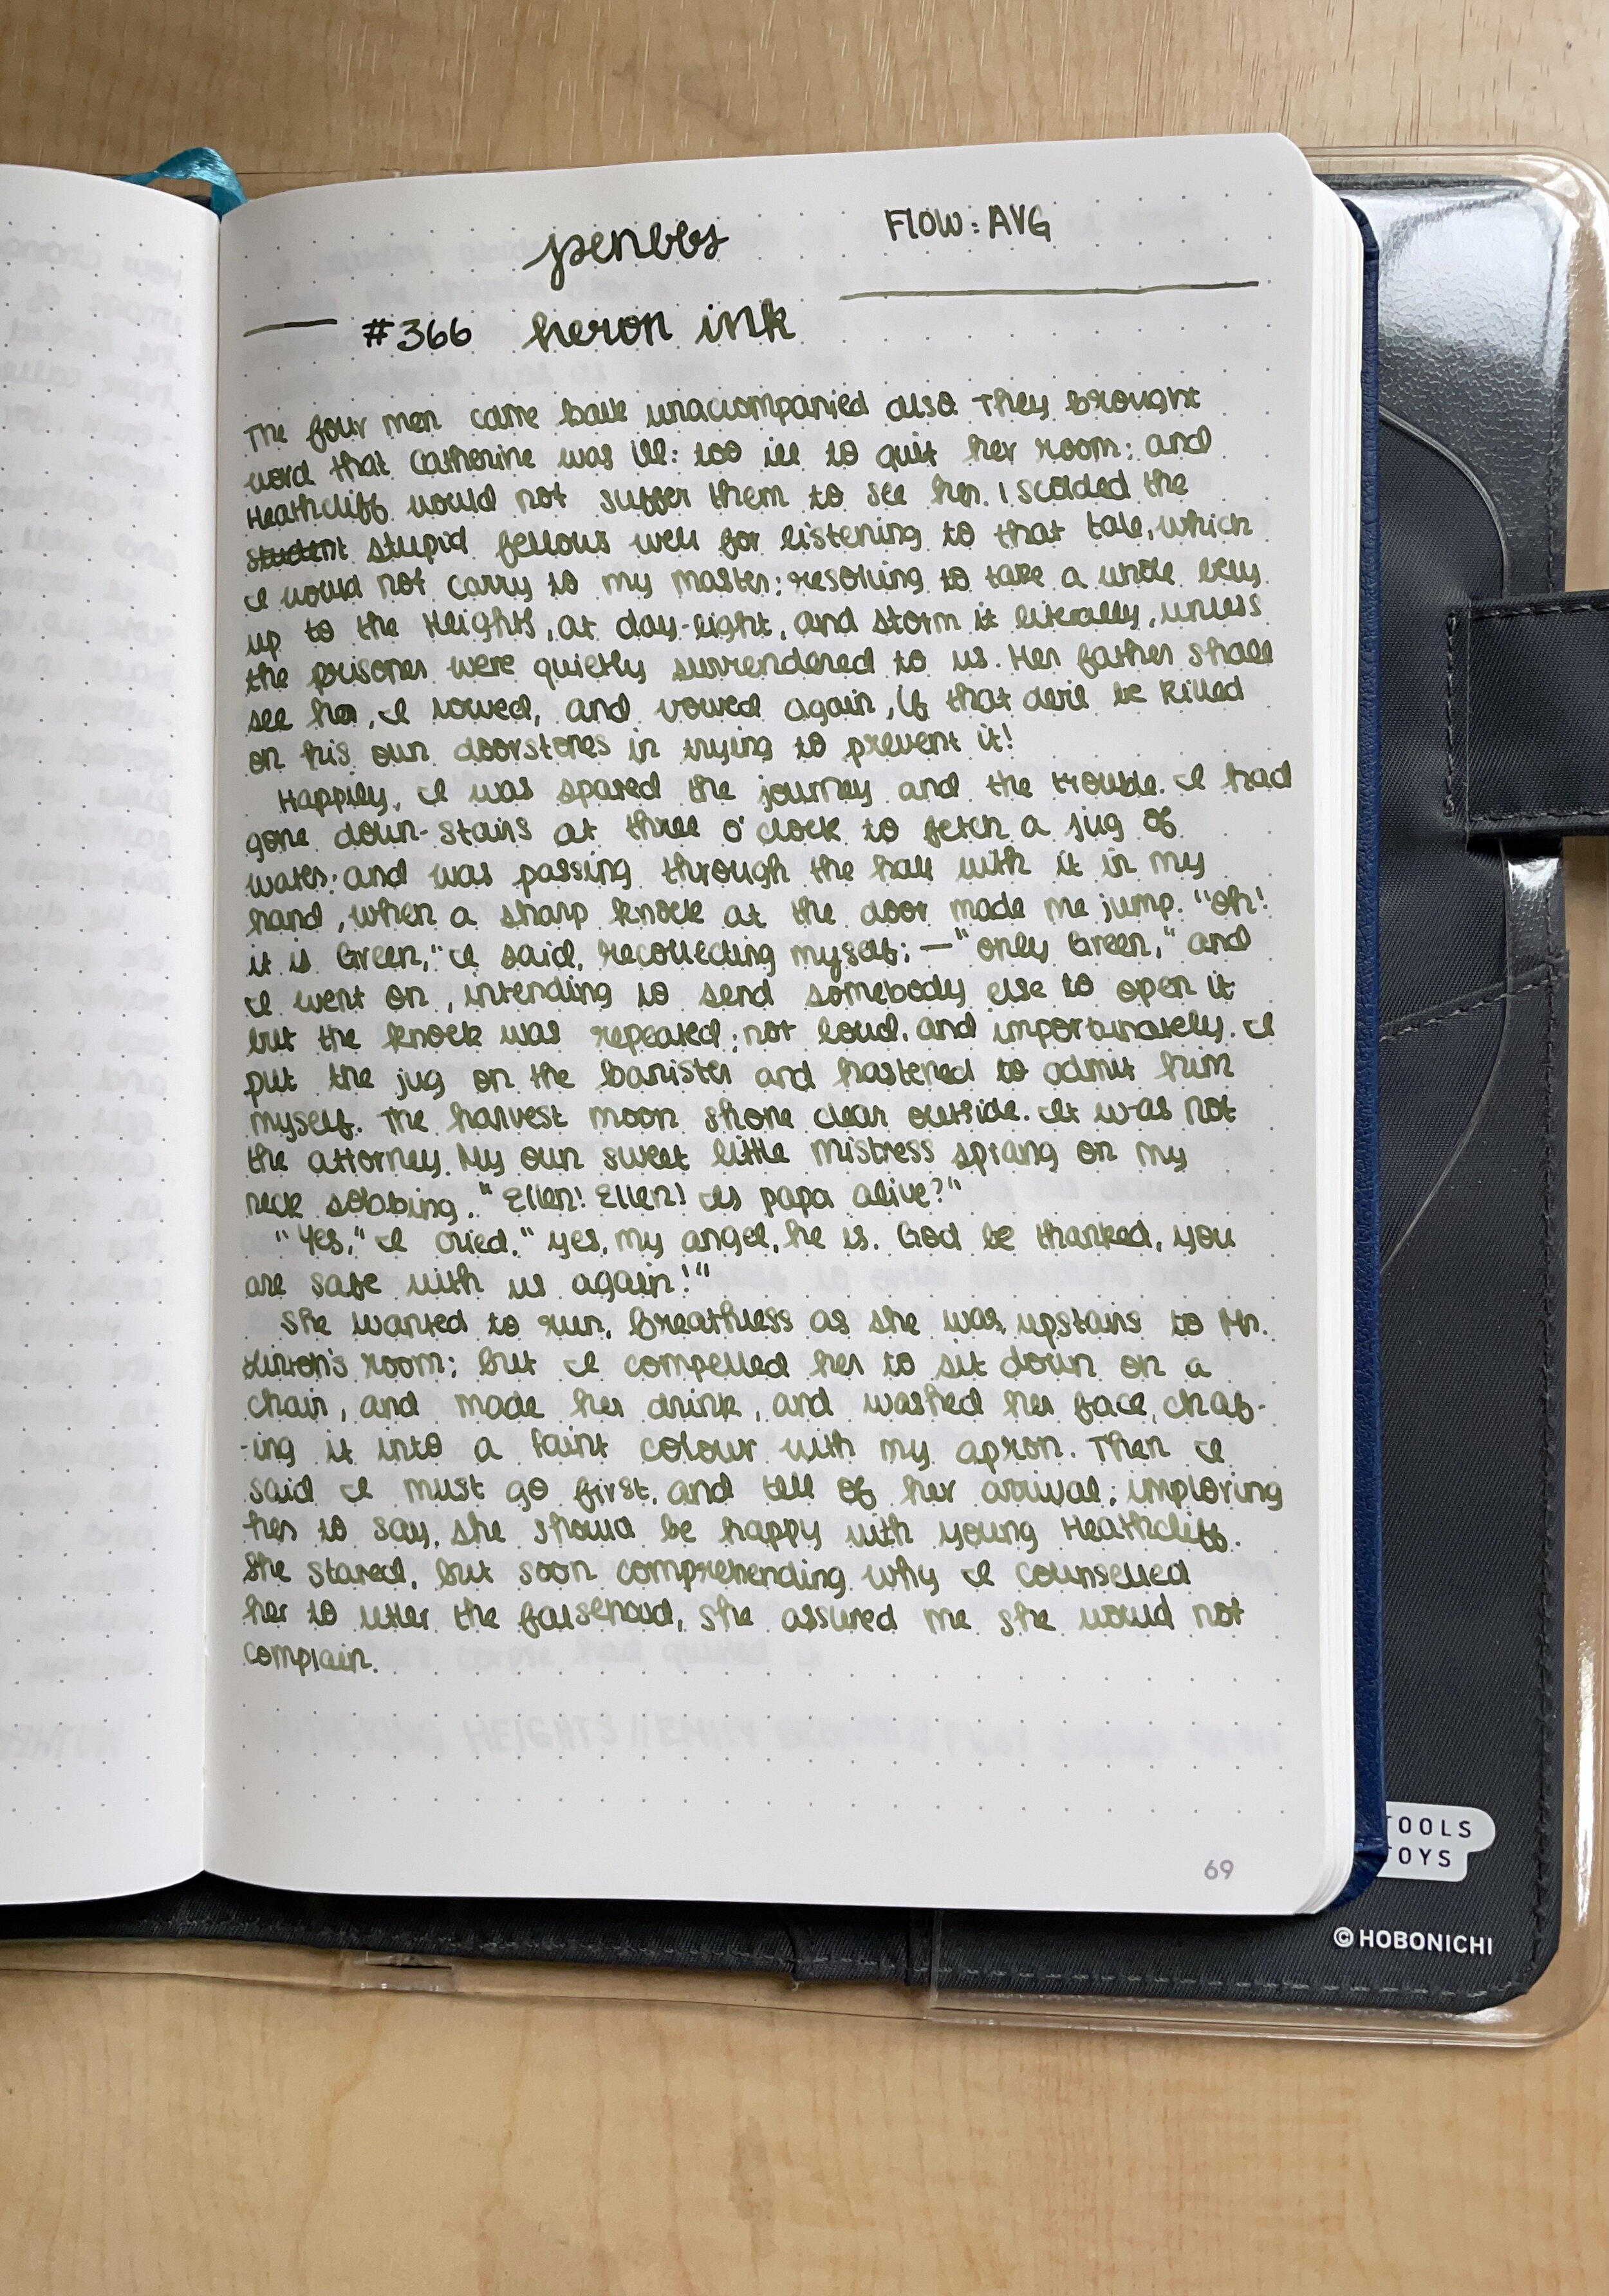 penbbs
FLOW: AVG
#366 heron ink
The four men came back unaccompanied also. They brought
word that Catherine was ill: too ill to quit her room; and
Heathcliff would not suffer them to see her. I scolded the
student stupid fellows well for listening to that tale, which
I would not carry to my master; resolving to take a whole bevy
up to the Heights, at day-light, and storm it literally, unless
the prisoner were quietly surrendered to us. Her father shall
see her, I vowed, and vowed again, if that devil be killed
on his own doorstones in trying to prevent it!
Happily, I was spared the journey and the trouble. I had
gone down-stairs at three o'clock to fetch a jug of
water; and was passing through the hall with it in my
hand, when a sharp knock at the door made me jump. "Oh!
it is Green," I said, recollecting myself; — "only Green," and
I went on, intending to send somebody else to open it
but the knock was repeated; not loud, and importunately. I
put the jug on the banister and hastened to admit him
myself. The harvest moon shone clear outside. It was not
the attorney. My own sweet little mistress sprang on my
neck sobbing. "Ellen! Ellen! Is papa alive?"
"Yes," I cried. "yes, my angel, he is. God be thanked, you
are safe with us again!"
She wanted to run, breathless as she was, upstairs to Mr.
Linton's room; but I compelled her to sit down on a
chair, and made her drink, and washed her face, chaf-
-ing it into a faint colour with my apron. Then I
said I must go first, and tell of her arrival; imploring
her to say, she should be happy with young Heathcliff.
She stared, but soon comprehending why I counselled
her to utter the falsehood, she assured me she would not
complain.
69
TOOLS
TOYS
© HOBONICHI